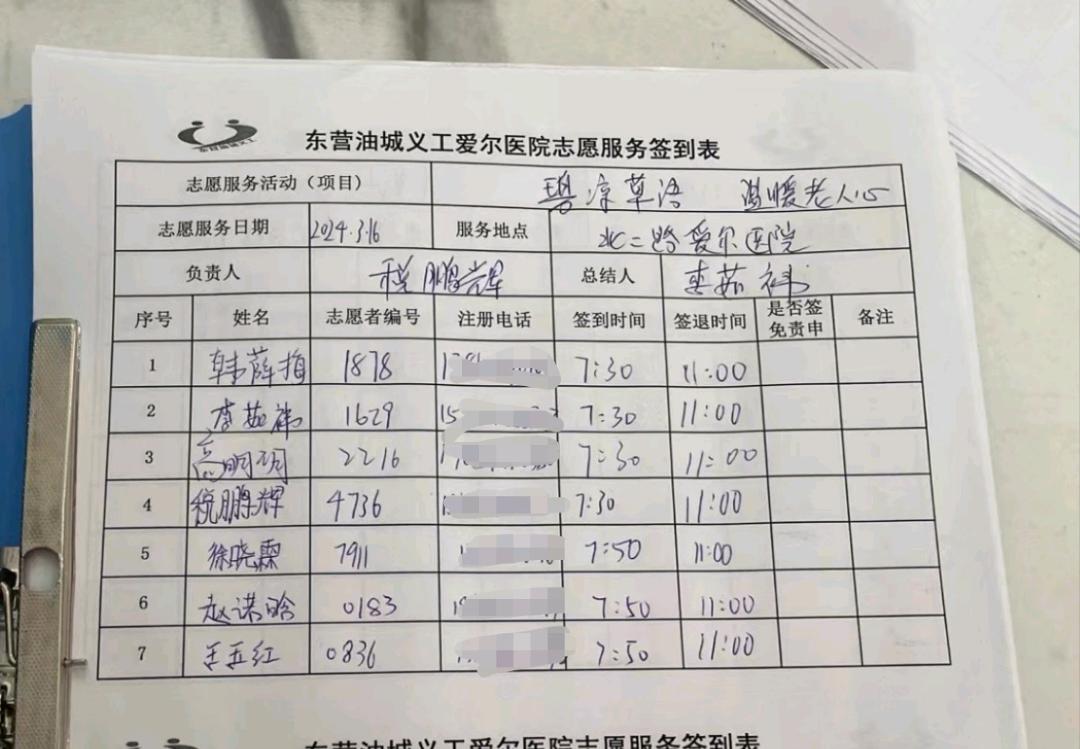 东营油城义工爱尔医院志愿服务签到表
志愿服务活动（项目） 碧凉草语 温暖老人心
志愿服务日期 2024.3.16 服务地点 北二路爱尔医院
负责人 税鹏辉 总结人 李茹祎
序号 姓名 志愿者编号 注册电话 签到时间 签退时间 是否签免责申 备注
1 韩薛梅 1878 7:30 11:00
2 李茹祎 1629 15 7:30 11:00
3 高明明 2216 7:30 11:00
4 税鹏辉 4736 7:30 11:00
5 徐晓霖 7911 7:50 11:00
6 赵诺晗 0183 7:50 11:00
7 王五红 0836 7:50 11:00
东营油城义工爱尔医院志愿服务签到表